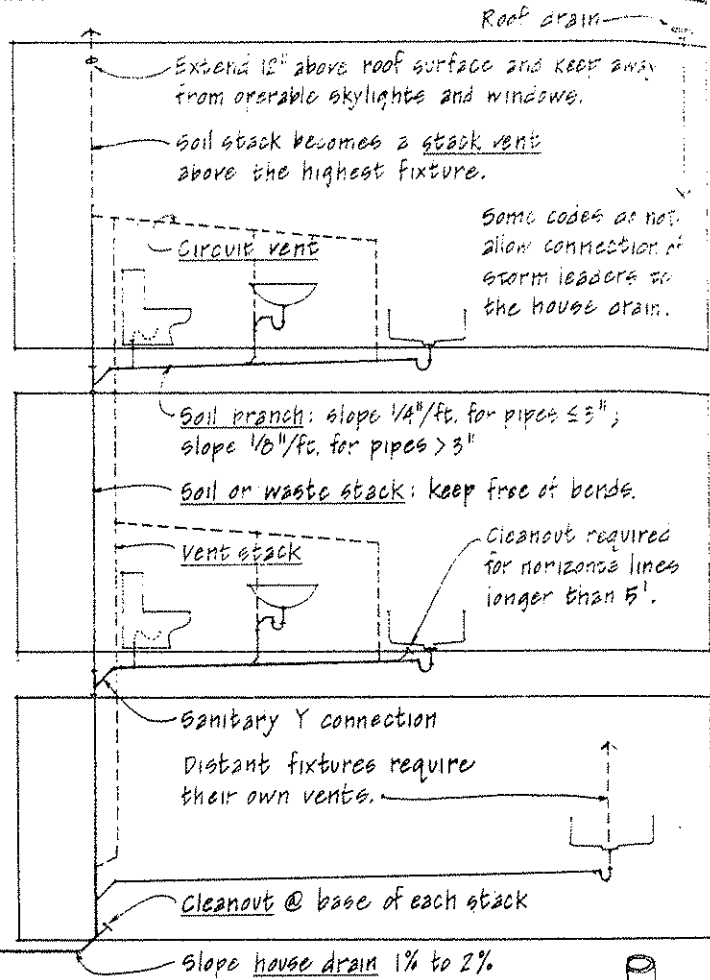 Roof drain
Extend 12" above roof surface and keep away
from operable skylights and windows.
Soil stack becomes a stack vent
above the highest fixture.
Circuit vent
Some codes do not
allow connection of
storm leaders to
the house drain.
Soil branch: slope 1/4"/ft. for pipes ≤ 3";
slope 1/8"/ft. for pipes > 3"
Soil or waste stack: keep free of bends.
Vent stack
Cleanout required
for horizontal lines
longer than 5'.
Sanitary Y connection
Distant fixtures require
their own vents.
Cleanout @ base of each stack
Slope house drain 1% to 2%